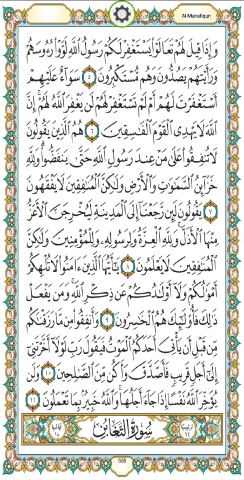 Al-Munafiqun
وَإِذَا قِيلَ لَهُمْ تَعَالَوْا۟ يَسْتَغْفِرْ لَكُمْ رَسُولُ ٱللَّهِ لَوَّوْا۟ رُءُوسَهُمْ
وَرَأَيْتَهُمْ يَصُدُّونَ وَهُم مُّسْتَكْبِرُونَ ٥ سَوَآءٌ عَلَيْهِمْ
أَسْتَغْفَرْتَ لَهُمْ أَمْ لَمْ تَسْتَغْفِرْ لَهُمْ لَن يَغْفِرَ ٱللَّهُ لَهُمْ إِنَّ
ٱللَّهَ لَا يَهْدِى ٱلْقَوْمَ ٱلْفَٰسِقِينَ ٦ هُمُ ٱلَّذِينَ يَقُولُونَ
لَا تُنفِقُوا۟ عَلَىٰ مَنْ عِندَ رَسُولِ ٱللَّهِ حَتَّىٰ يَنفَضُّوا۟ وَلِلَّهِ
خَزَآئِنُ ٱلسَّمَٰوَٰتِ وَٱلْأَرْضِ وَلَٰكِنَّ ٱلْمُنَٰفِقِينَ لَا يَفْقَهُونَ
٧ يَقُولُونَ لَئِن رَّجَعْنَآ إِلَى ٱلْمَدِينَةِ لَيُخْرِجَنَّ ٱلْأَعَزُّ
مِنْهَا ٱلْأَذَلَّ وَلِلَّهِ ٱلْعِزَّةُ وَلِرَسُولِهِۦ وَلِلْمُؤْمِنِينَ وَلَٰكِنَّ
ٱلْمُنَٰفِقِينَ لَا يَعْلَمُونَ ٨ يَٰٓأَيُّهَا ٱلَّذِينَ ءَامَنُوا۟ لَا تُلْهِكُمْ
أَمْوَٰلُكُمْ وَلَآ أَوْلَٰدُكُمْ عَن ذِكْرِ ٱللَّهِ وَمَن يَفْعَلْ
ذَٰلِكَ فَأُو۟لَٰٓئِكَ هُمُ ٱلْخَٰسِرُونَ ٩ وَأَنفِقُوا۟ مِن مَّا رَزَقْنَٰكُم
مِّن قَبْلِ أَن يَأْتِىَ أَحَدَكُمُ ٱلْمَوْتُ فَيَقُولَ رَبِّ لَوْلَآ أَخَّرْتَنِىٓ
إِلَىٰٓ أَجَلٍ قَرِيبٍ فَأَصَّدَّقَ وَأَكُن مِّنَ ٱلصَّٰلِحِينَ ١٠ وَلَن
يُؤَخِّرَ ٱللَّهُ نَفْسًا إِذَا جَآءَ أَجَلُهَا وَٱللَّهُ خَبِيرٌۢ بِمَا تَعْمَلُونَ ١١
سُورَةُ ٱلتَّغَابُنِ
555